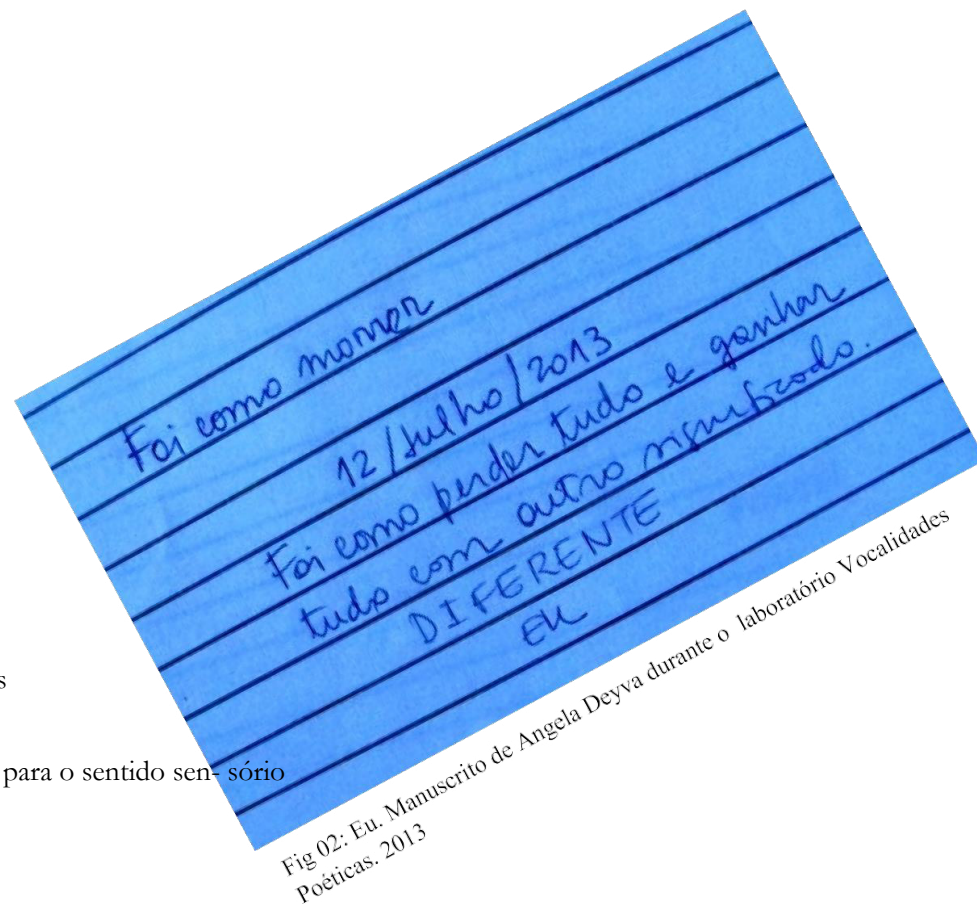 Foi como morrer
12/Julho/2013
Foi como perder tudo e ganhar
tudo com outro significado.
DIFERENTE
EU
s
para o sentido sen- sório
Fig 02: Eu. Manuscrito de Angela Deyva durante o laboratório Vocalidades
Poéticas. 2013